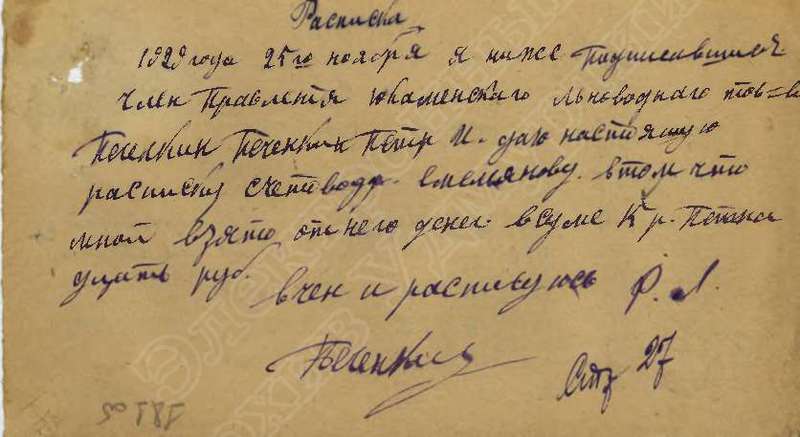 Расписка
1929 года 25го ноября я ниже подписавшийся
член Правления Юкаменского льноводнаго тов-ва
Печенкин Петр И. даю настоящую
расписку счетовод. Емельянову в том что
мной взято от него денег в суме р. Пятна
уцать руб.
в чем и расписуюсь Р. Л.
Печенкин
Стр 27